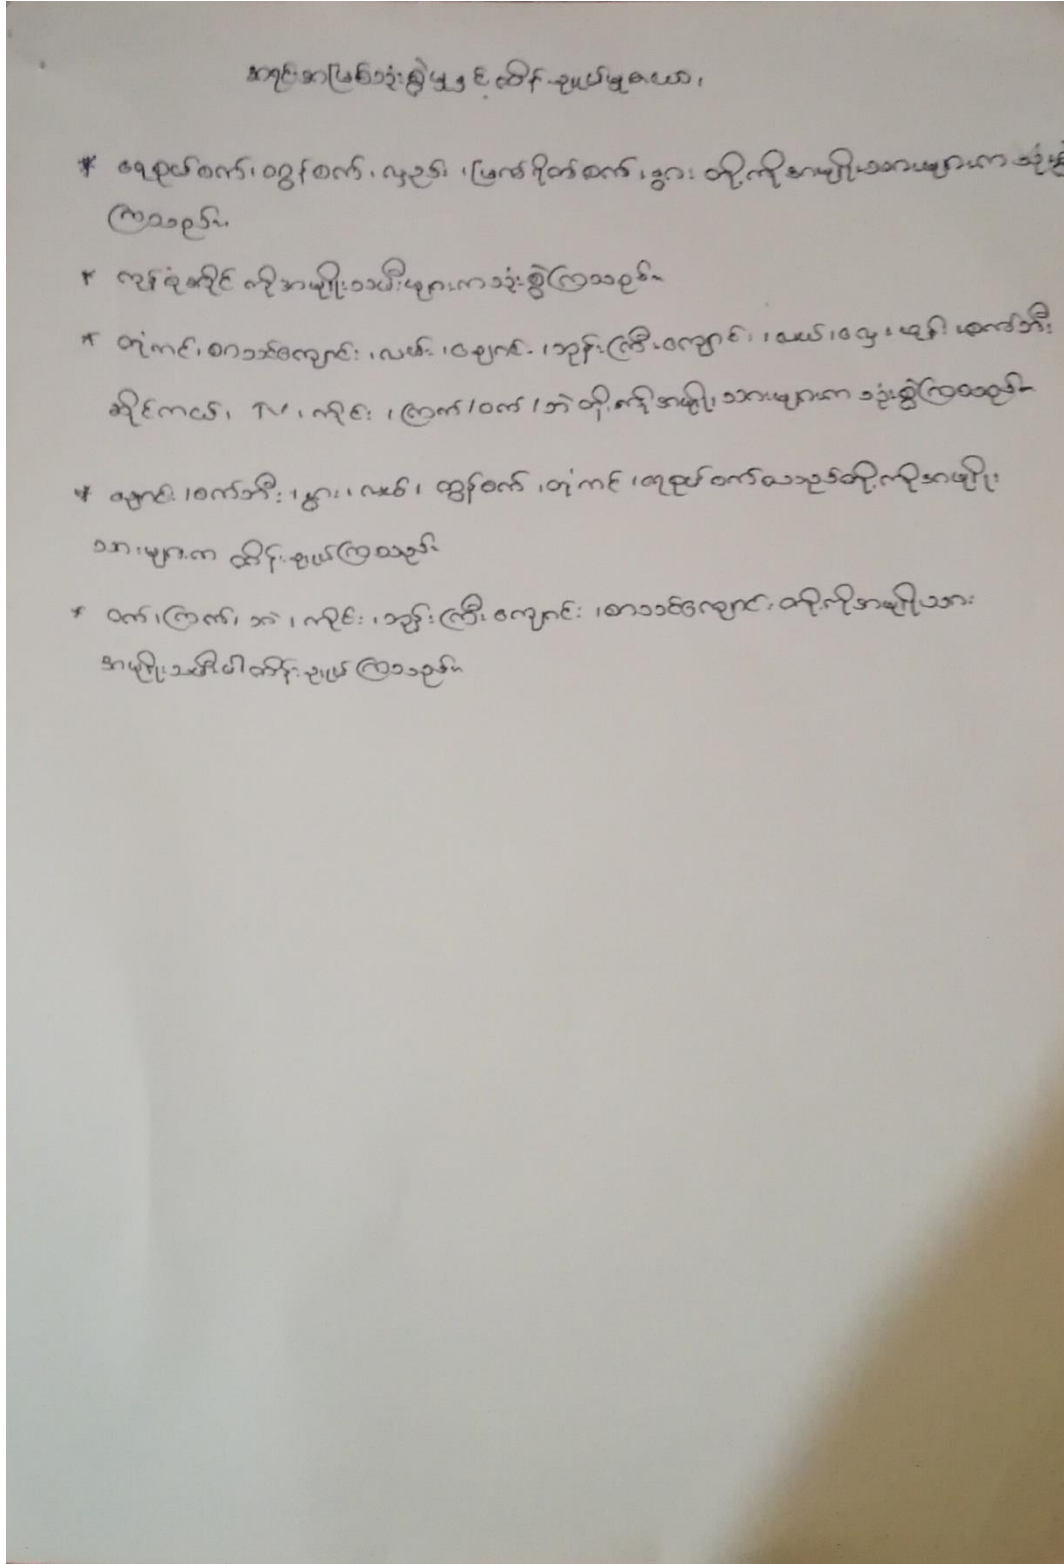 အရင်းအမြစ်သုံးစွဲမှုနှင့် ထိန်းချုပ်မှုဇယား
* ရေစုပ်စက်၊ ထွန်စက်၊ လှည်း၊ မြက်ရိတ်စက်၊ နွား တို့ကိုအမျိုးသားများက သုံးစွဲ
ကြသည်။
* ကုန်စုံဆိုင် ကိုအမျိုးသမီးများကသုံးစွဲကြသည်။
* တုံကင်၊ စာသင်ကျောင်း၊ လမ်း၊ ချောင်း၊ ဘုန်းကြီးကျောင်း၊ လယ်၊ လှေ၊ ၊ စက်ဘီး
ဆိုင်ကယ်၊ TV၊ ကိုင်း၊ ကြက်/ဝက်/ဘဲ တို့ကိုအမျိုးသားများက သုံးစွဲကြသည်။
* ချောင်း၊ စက်ဘီး၊ နွား၊ လယ်၊ ထွန်စက်၊ တုံကင်၊ ရေစုပ်စက်စသည်တို့ကိုအမျိုး
သားများက ထိန်းချုပ်ကြသည်။
* ဝက်၊ ကြက်၊ ဘဲ၊ ကိုင်း၊ ဘုန်းကြီးကျောင်း၊ စာသင်ကျောင်း တို့ကိုအမျိုးသား
အမျိုးသမီးပါထိန်းချုပ်ကြသည်။